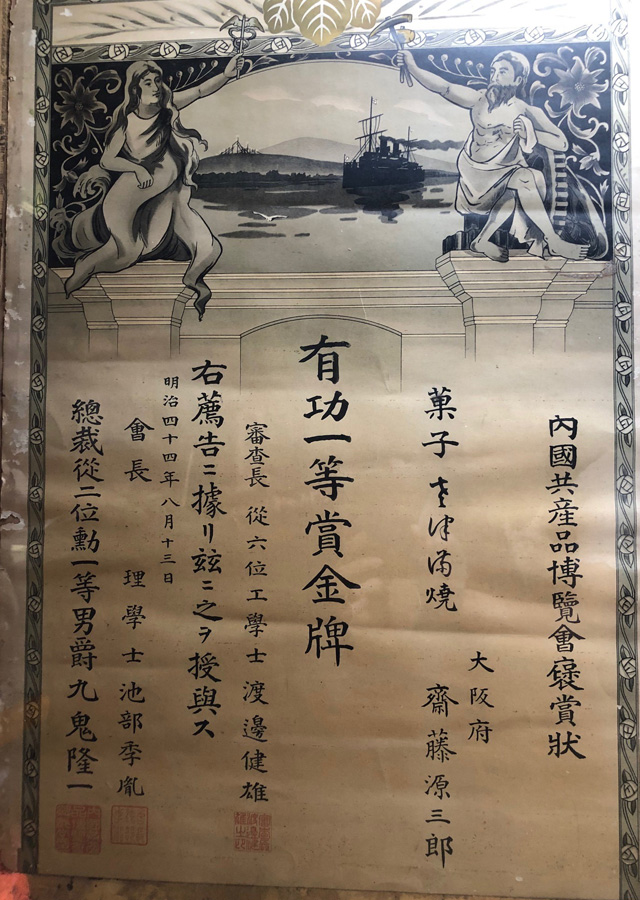 內國共産品博覽會襃賞狀
大阪府
菓子 さ津満燒 齋藤源三郎
有功一等賞金牌
審査長 從六位工學士 渡邊健雄
右薦告ニ據リ玆ニ之ヲ授與ス
明治四十四年八月十三日
會長 理學士 池部季胤
總裁從二位勳一等男爵九鬼隆一